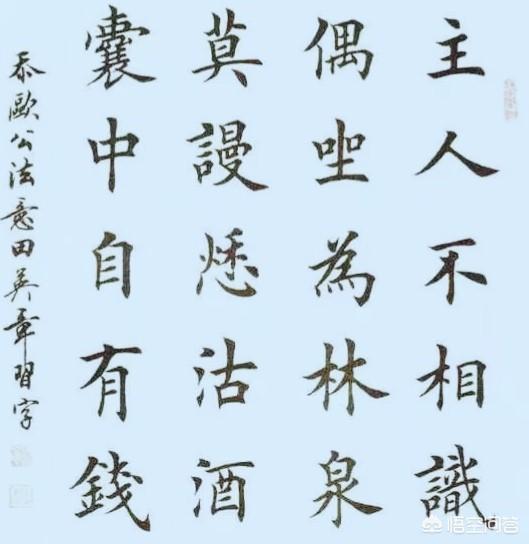 主人不相識
偶坐為林泉
莫謾愁沽酒
囊中自有錢
忝歐公法意田英章習字
悟空问答